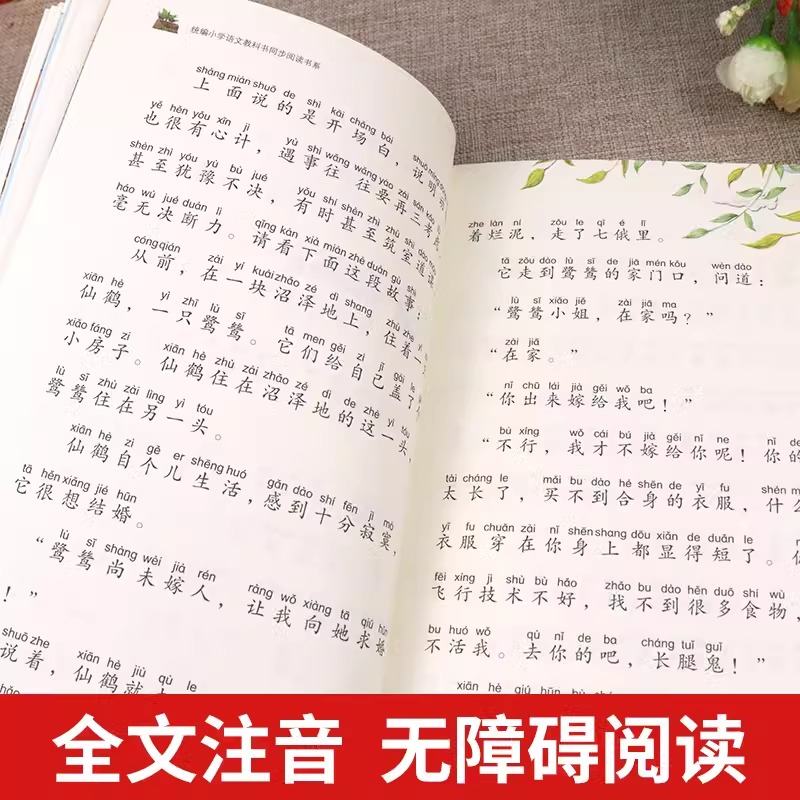 统编小学语文教科书同步阅读书系
shàng miàn shuō de shì kāi chǎng bái shuō míng
上面说的是开场白，说明
yě hěn yǒu xīn jì yù shì wǎng wǎng yào zài sān kǎo
也很有心计，遇事往往要再三考
shèn zhì yóu yù bù jué yǒu shí shèn zhì zhù shì dào
甚至犹豫不决，有时甚至筑室道
háo wú jué duàn lì qǐng kàn xià miàn zhè duàn gù shi
毫无决断力。请看下面这段故事：
cóng qián zài yí kuài zhǎo zé dì shang zhù zhe
从前，在一块沼泽地上，住着一
xiān hè yì zhī lù sī tā men gěi zì jǐ gài le
仙鹤，一只鹭鸶。它们给自己盖了
xiǎo fáng zi xiān hè zhù zài zhǎo zé dì de zhè yì tóu
小房子。仙鹤住在沼泽地的这一头，
lù sī zhù zài lìng yì tóu
鹭鸶住在另一头。
xiān hè zì gě er shēng huó gǎn dào shí fēn jì mò
仙鹤自个儿生活，感到十分寂寞，
tā hěn xiǎng jié hūn
它很想结婚。
lù sī shàng wèi jià rén ràng wǒ xiàng tā qiú hūn
“鹭鸶尚未嫁人，让我向她求婚
！”
shuō zhe xiān hè jiù qù le
说着，仙鹤就
zhe làn ní zǒu le qī é lǐ
着烂泥，走了七俄里。
tā zǒu dào lù sī de jiā mén kǒu wèn dào
它走到鹭鸶的家门口，问道：
lù sī xiǎo jiě zài jiā ma
“鹭鸶小姐，在家吗？”
zài jiā
“在家。”
nǐ chū lái jià gěi wǒ ba
“你出来嫁给我吧！”
bù xíng wǒ cái bú jià gěi nǐ ne nǐ de
“不行，我才不嫁给你呢！你的
tài cháng le mǎi bu dào hé shēn de yī fu shén me
太长了，买不到合身的衣服，什么
yī fu chuān zài nǐ shēn shang dōu xiǎn de duǎn le
衣服穿在你身上都显得短了。
fēi xíng jì shù bù hǎo zhǎo bu dào hěn duō shí wù
飞行技术不好，找不到很多食物，
bu huó wǒ qù nǐ de ba cháng tuǐ guǐ
不活我。去你的吧，长腿鬼！”
xiān hè qiú hūn bù
全文注音 无障碍阅读